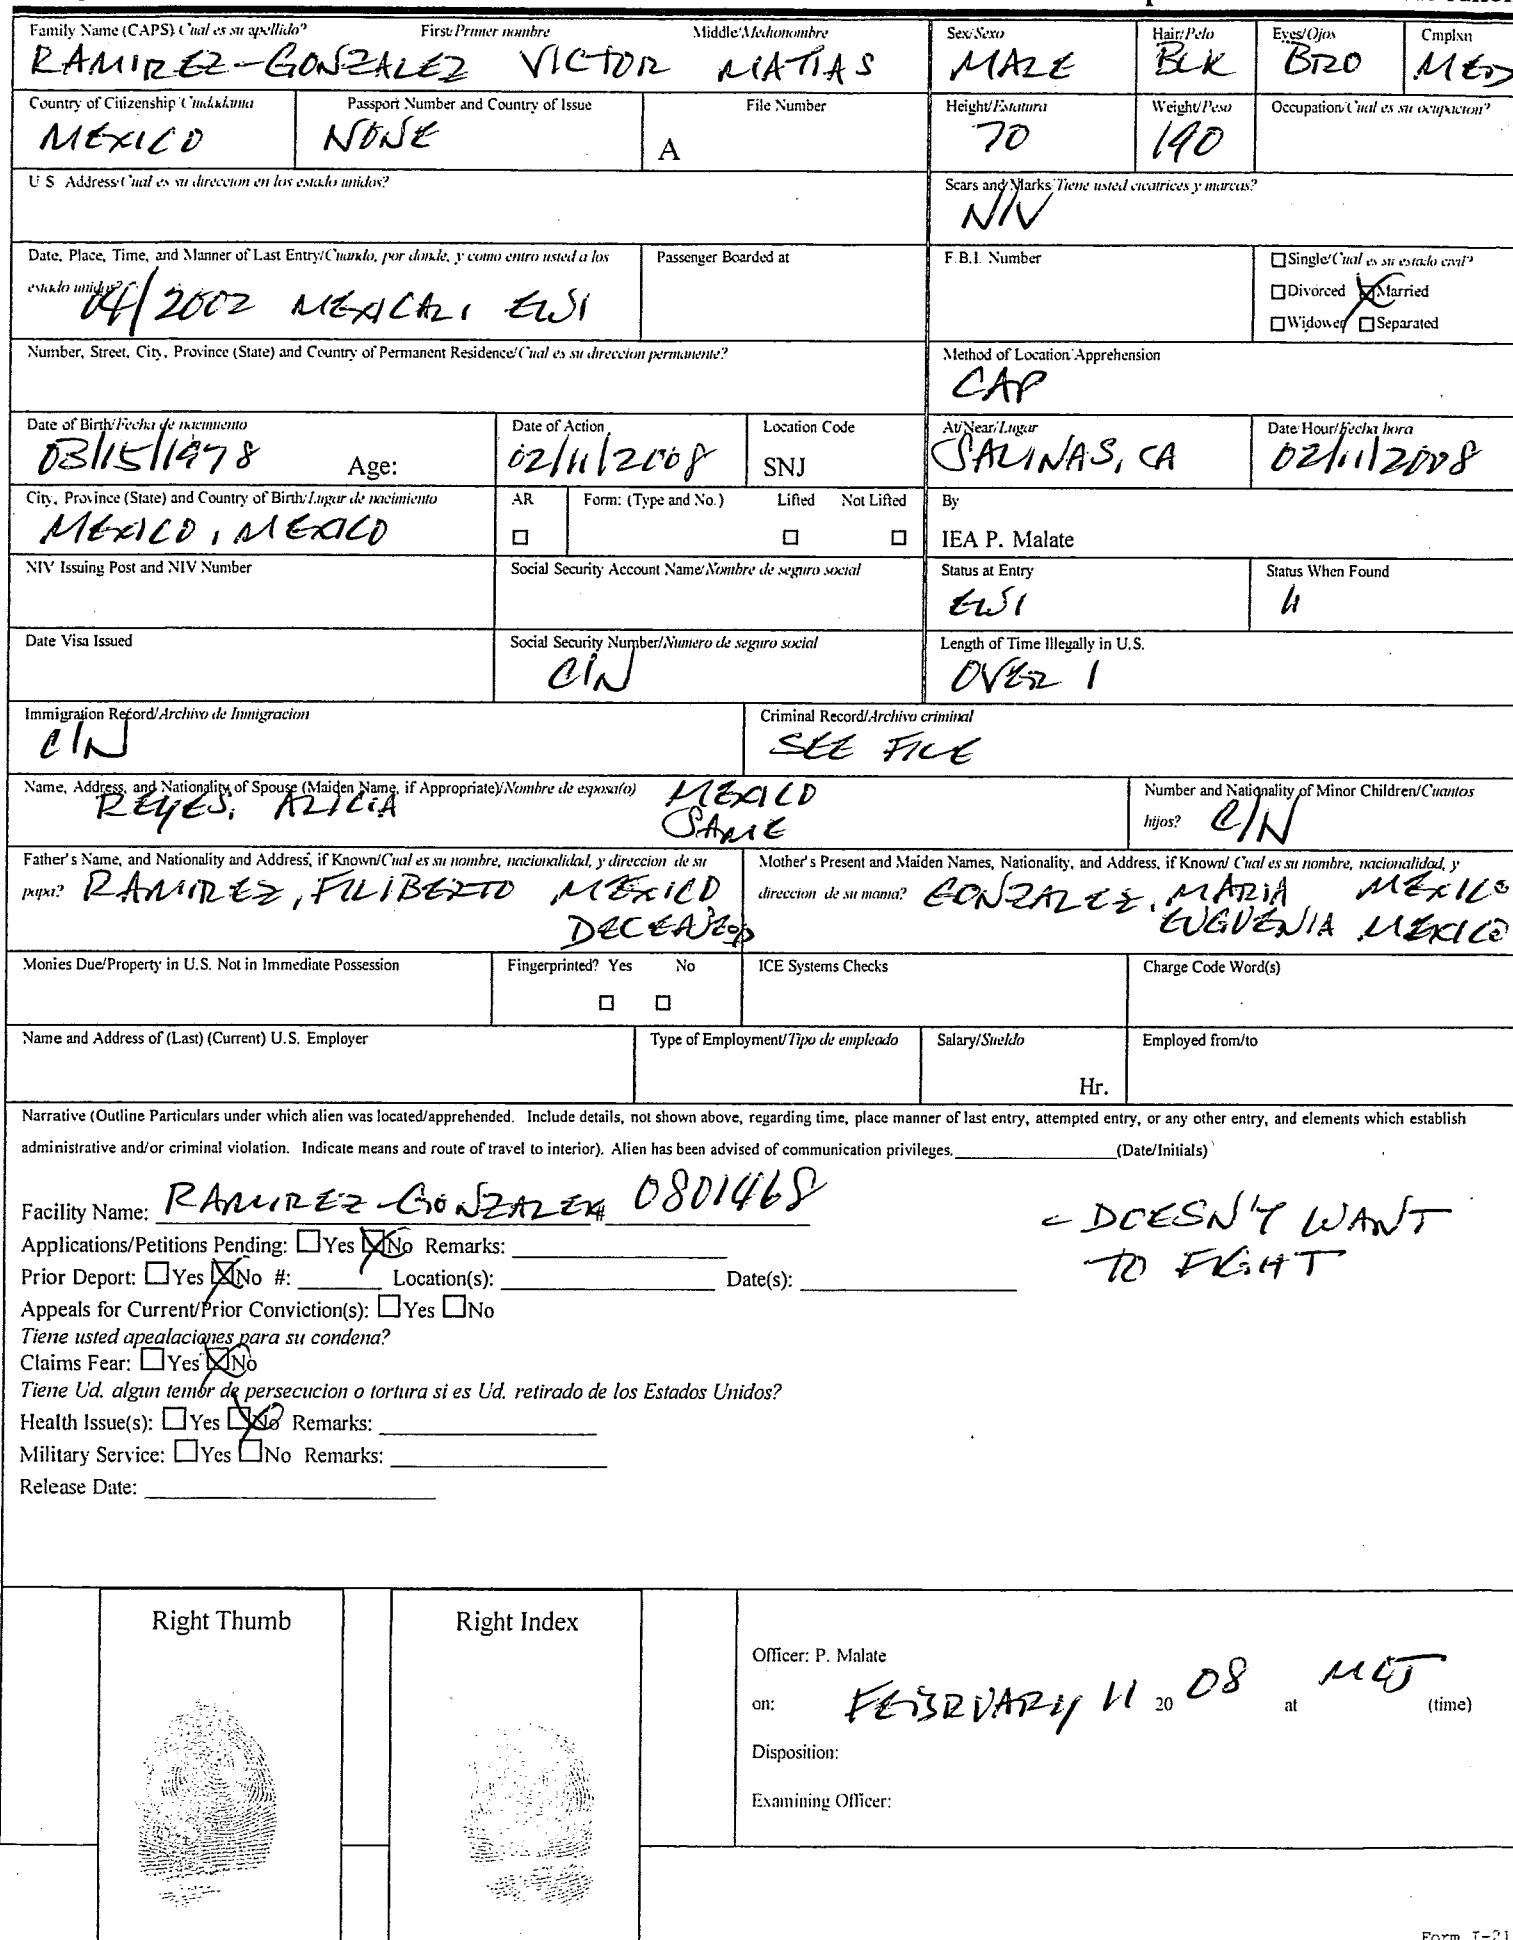 Family Name (CAPS) Cual es su apellido? First/Primer nombre Middle/Medionombre Sex/Sexo Hair/Pelo Eyes/Ojos Cmplxn
RAMIREZ-GONZALEZ VICTOR MATIAS MALE BLK BRO MED
Country of Citizenship/Ciudadania Passport Number and Country of Issue File Number Height/Estatura Weight/Peso Occupation/Cual es su ocupacion?
MEXICO NONE A 70 190
U S Address/Cual es su direccion en los estado unidos? Scars and Marks/Tiene usted cicatrices y marcas?
N/V
Date, Place, Time, and Manner of Last Entry/Cuando, por donde, y como entro usted a los estado unidos? Passenger Boarded at F.B.I. Number
☐Single/Cual es su estado civil?
☐Divorced ☒Married
☐Widower ☐Separated
04/2002 MEXICALI EWI
Number, Street, City, Province (State) and Country of Permanent Residence/Cual es su direccion permanente? Method of Location/Apprehension
CAP
Date of Birth/Fecha de nacimiento Date of Action Location Code At/Near/Lugar Date/Hour/Fecha hora
03/15/1978 Age: 02/11/2008 SNJ SALINAS, CA 02/11/2008
City, Province (State) and Country of Birth/Lugar de nacimiento AR Form: (Type and No.) Lifted Not Lifted By
MEXICO, MEXICO ☐ ☐ ☐ IEA P. Malate
NIV Issuing Post and NIV Number Social Security Account Name/Nombre de seguro social Status at Entry Status When Found
EWI
Date Visa Issued Social Security Number/Numero de seguro social Length of Time Illegally in U.S.
C/N OVER 1
Immigration Record/Archivo de Inmigracion Criminal Record/Archivo criminal
C/N SEE FILE
Name, Address, and Nationality of Spouse (Maiden Name, if Appropriate)/Nombre de esposa(o) Number and Nationality of Minor Children/Cuantos hijos?
REYES, ALICIA MEXICO C/N
SAME
Father's Name, and Nationality and Address, if Known/Cual es su nombre, nacionalidad, y direccion de su papa? RAMIREZ, FILIBERTO MEXICO
DECEASED
Mother's Present and Maiden Names, Nationality, and Address, if Known/ Cual es su nombre, nacionalidad, y direccion de su mama? GONZALEZ, MARIA MEXICO
EUGUENIA MEXICO
Monies Due/Property in U.S. Not in Immediate Possession Fingerprinted? Yes No ICE Systems Checks Charge Code Word(s)
☐ ☐
Name and Address of (Last) (Current) U.S. Employer Type of Employment/Tipo de empleado Salary/Sueldo Employed from/to
Hr.
Narrative (Outline Particulars under which alien was located/apprehended. Include details, not shown above, regarding time, place manner of last entry, attempted entry, or any other entry, and elements which establish
administrative and/or criminal violation. Indicate means and route of travel to interior). Alien has been advised of communication privileges. (Date/Initials)
Facility Name: RAMIREZ-GONZALEZ # 0801468
- DOESN'T WANT
TO FIGHT
Applications/Petitions Pending: ☐Yes ☒No Remarks:
Prior Deport: ☐Yes ☒No #: Location(s): Date(s):
Appeals for Current/Prior Conviction(s): ☐Yes ☐No
Tiene usted apealaciones para su condena?
Claims Fear: ☐Yes ☒No
Tiene Ud. algun temor de persecucion o tortura si es Ud. retirado de los Estados Unidos?
Health Issue(s): ☐Yes ☒No Remarks:
Military Service: ☐Yes ☐No Remarks:
Release Date:
Right Thumb Right Index
Officer: P. Malate
on: FEBRUARY 11 20 08 at MCJ (time)
Disposition:
Examining Officer:
Form I-21